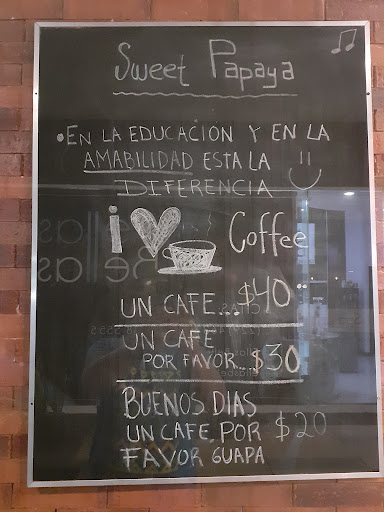 Sweet Papaya
• EN LA EDUCACION Y EN LA
AMABILIDAD ESTA LA
DIFERENCIA
i Coffee
UN CAFE... $40
UN CAFE
POR FAVOR... $30
BUENOS DIAS
UN CAFE POR $20
FAVOR GUAPA